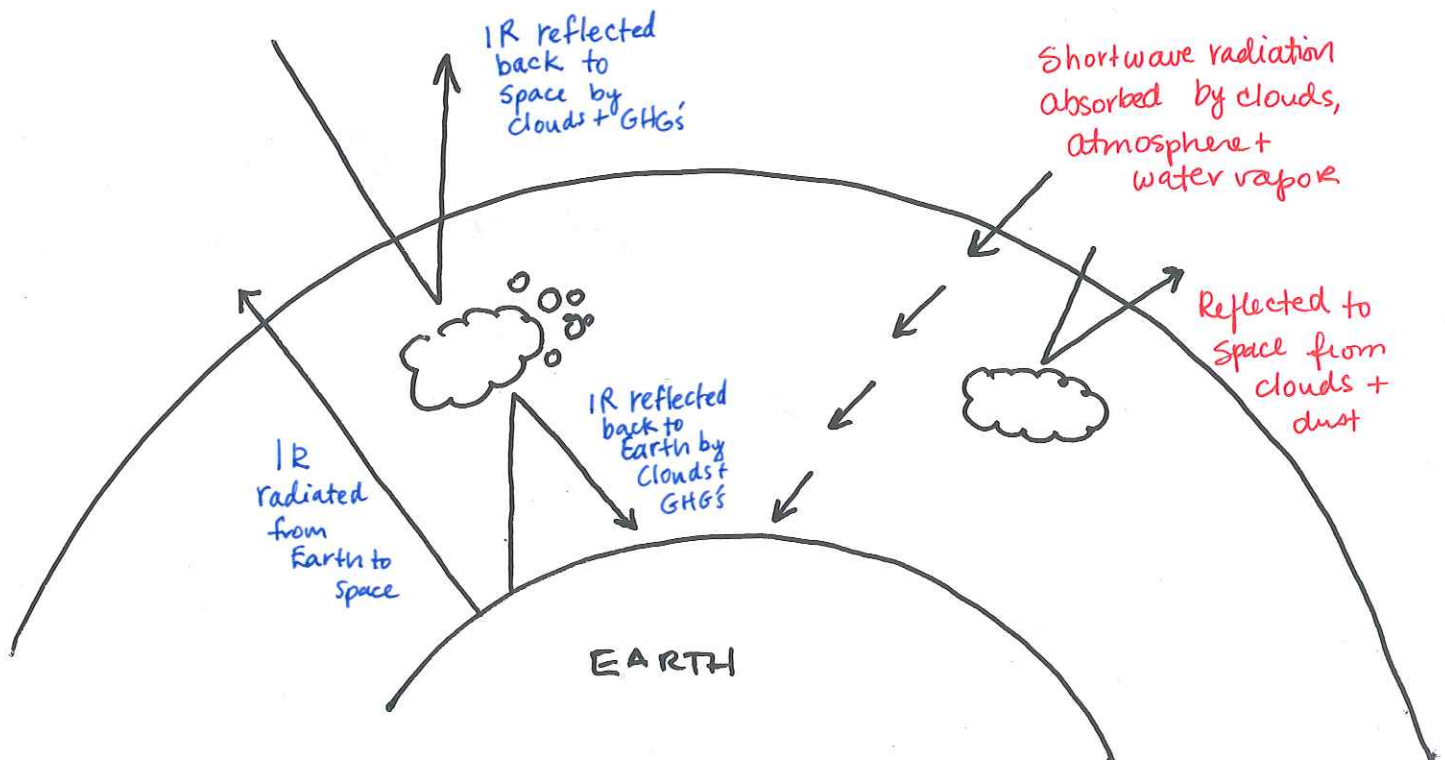 IR reflected
back to
Space by
Clouds + GHG's
Shortwave radiation
absorbed by clouds,
atmosphere +
water vapor
Reflected to
Space from
clouds +
dust
IR reflected
back to
Earth by
Clouds +
GHG's
IR
radiated
from
Earth to
Space
EARTH